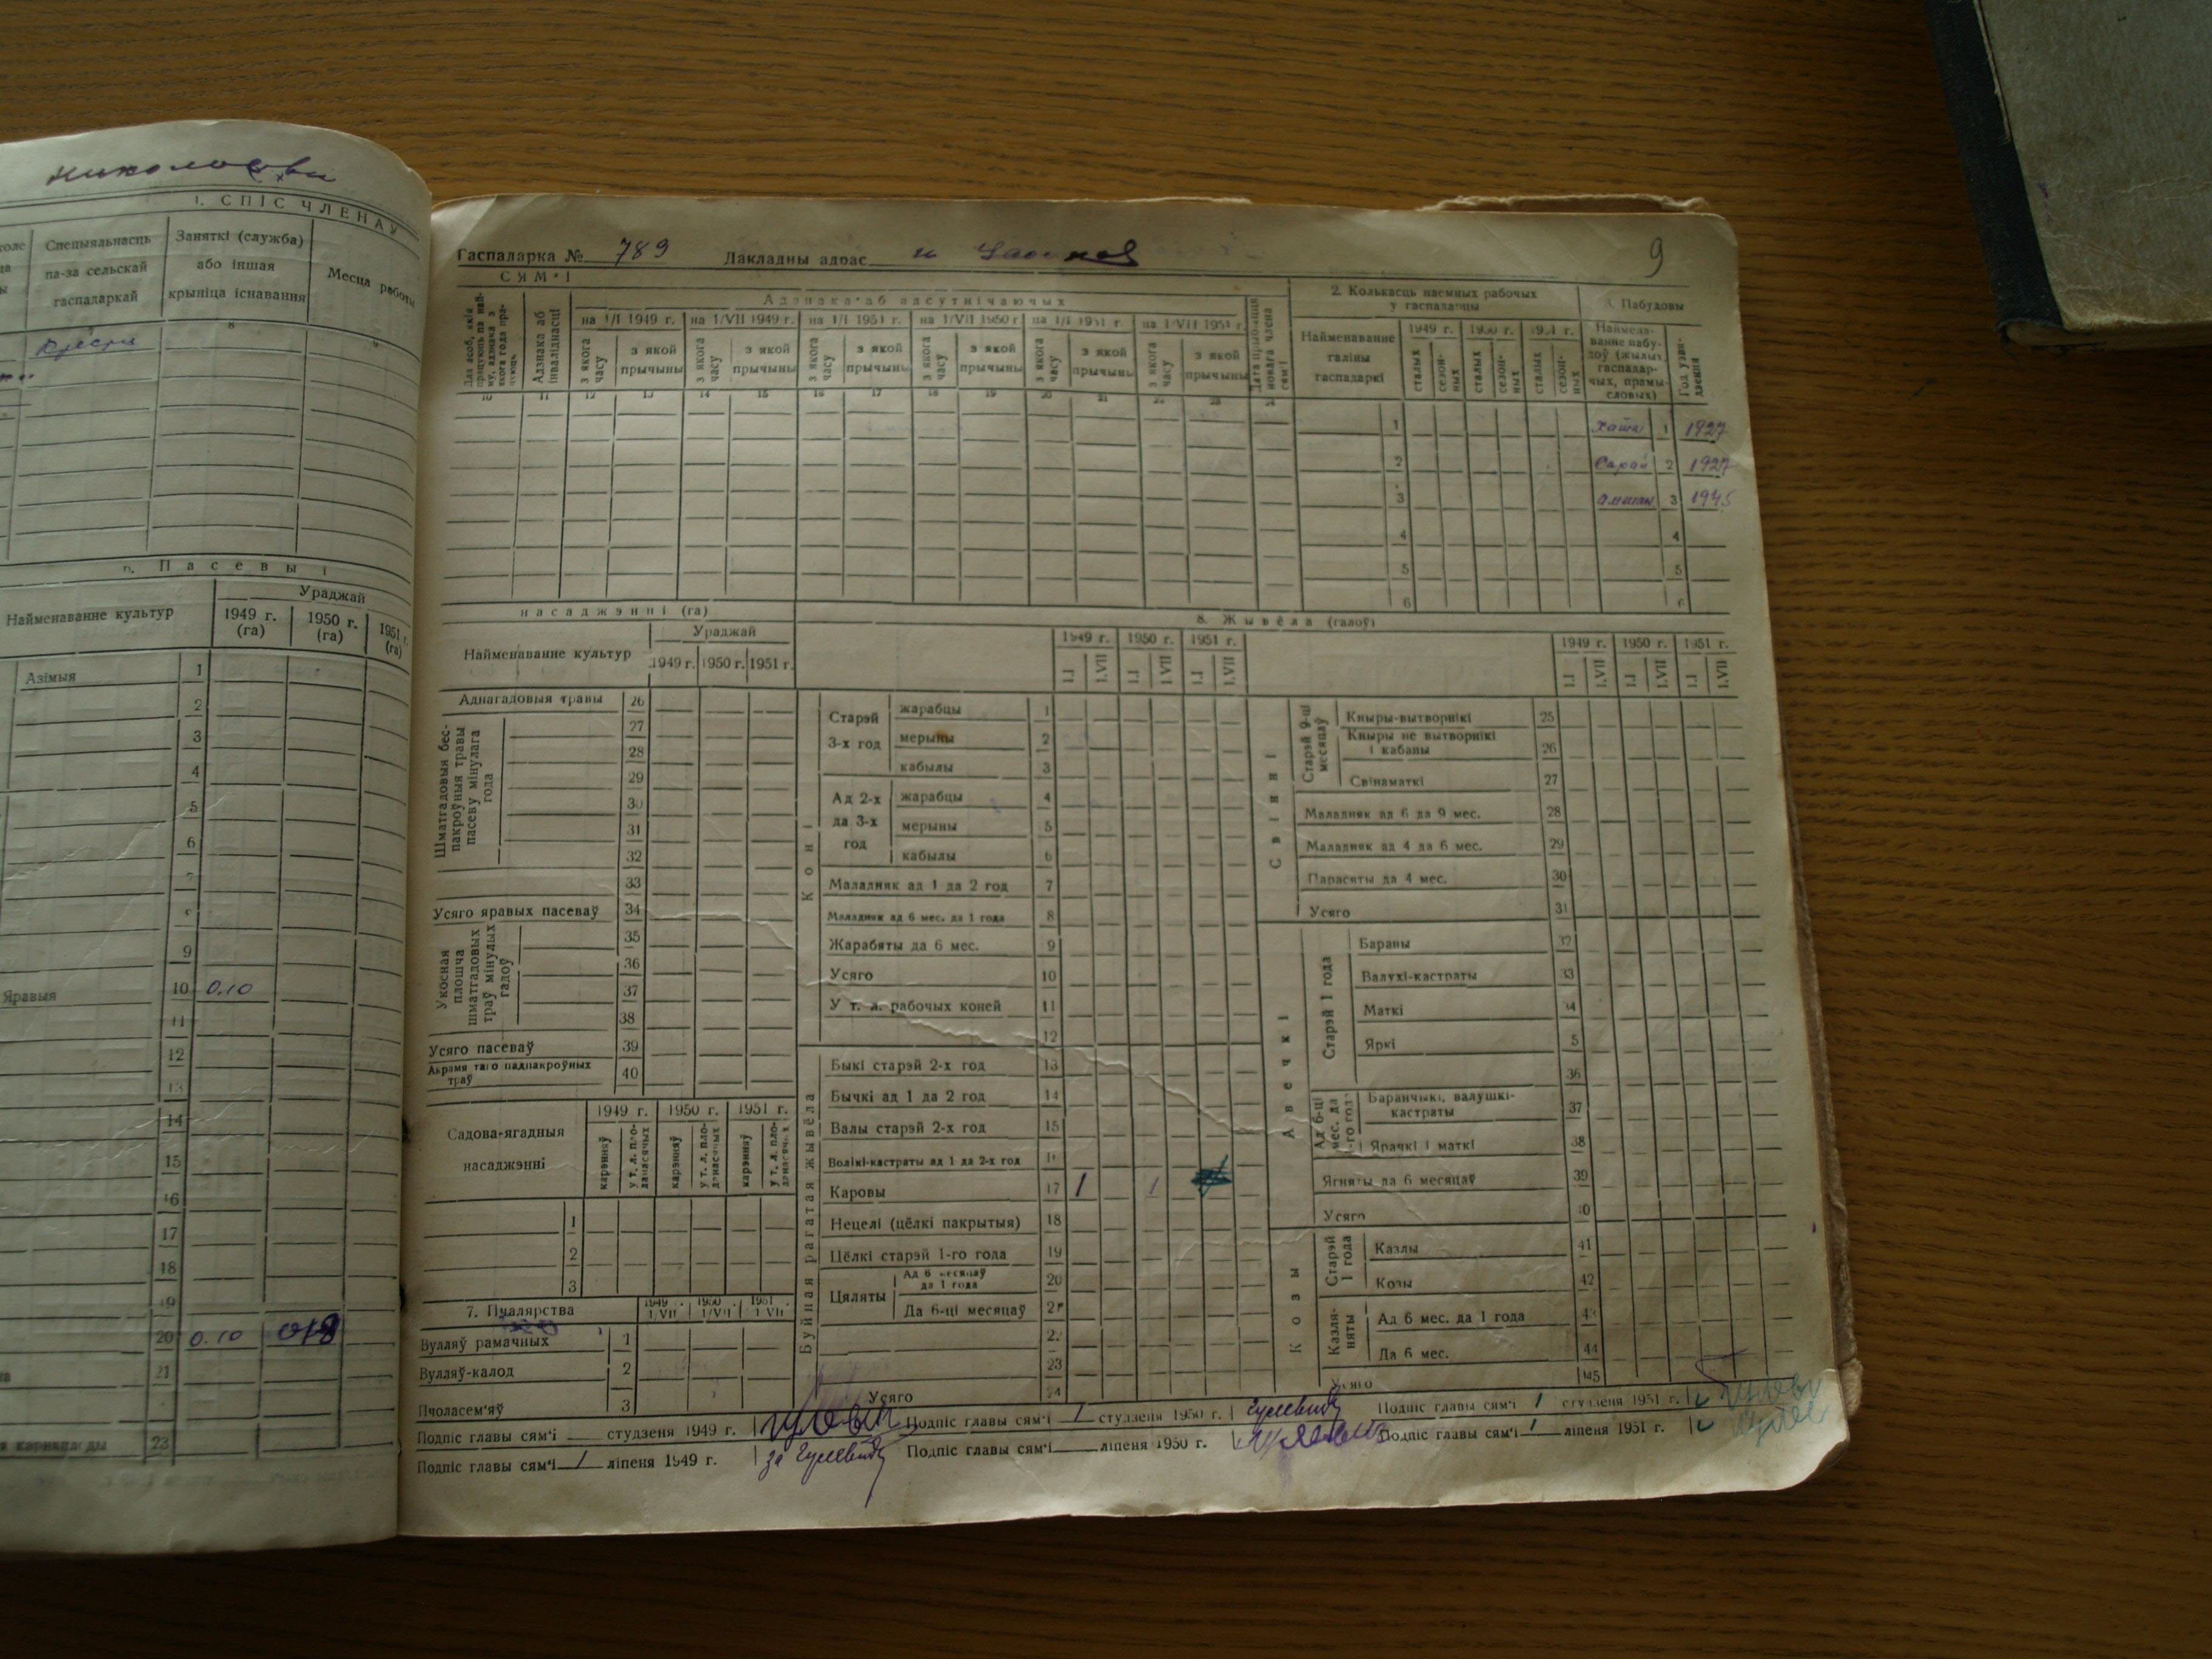 1. СПІС ЧЛЕНАЎ
Спецыяльнасць па-за сельскай гаспадаркай
Заняткі (служба) або іншая крыніца існавання
Месца работы
7 8 9
Пасевы і
Найменаванне культур
Ураджай
1949 г. (га) 1950 г. (га) 1951 г. (га)
Азімыя 1
2
3
4
5
6
7
8
9
Яравыя 10 0.10
11
12
13
14
15
16
17
18
19
20 0.10
21
23
Гаспадарка № 789 Дакладны адрас 9
СЯМ'І
Адзнака аб інваліднасці
Адзнака аб адсутнічаючых
на 1/I 1949 г. на 1/VII 1949 г. на 1/I 1951 г. на 1/VII 1950 г. на 1/I 1951 г. на 1/VII 1951 г.
з якога часу з якой прычыны з якога часу з якой прычыны з якога часу з якой прычыны з якога часу з якой прычыны з якога часу з якой прычыны з якога часу з якой прычыны
Дата прыбыцця новага члена сям'і
10 11 12 13 14 15 16 17 18 19 20 21 22 23
2. Колькасць наемных рабочых у гаспадарцы
Найменаванне галіны гаспадаркі
1949 г. 1950 г. 1951 г.
сталых сезонных сталых сезонных сталых сезонных
3. Пабудовы
Найменаванне пабудоў (жылых, гаспадарчых, прамысловых)
Год узвядзення
1 Хата 1 1927
2 Сарай 2 1927
3 3 1945
4 4
5 5
6 6
насаджэнні (га)
Найменаванне культур
Ураджай
1949 г. 1950 г. 1951 г.
Аднагадовыя травы 26
Шматгадовыя беспакроўныя травы пасеву мінулага года
27
28
29
30
31
32
33
Усяго яравых пасеваў 34
Укосная плошча шматгадовых траў мінулых гадоў
35
36
37
38
Усяго пасеваў 39
Акрамя таго падпакроўных траў 40
Садова-ягадныя насаджэнні
1949 г. 1950 г. 1951 г.
карэнняў у т. л. пладанасячых карэнняў у т. л. пладанасячых карэнняў у т. л. пладанасячых
1
2
3
7. Пчалярства
1949 1/VII 1950 1/VII 1951 1/VII
Вулляў рамачных 1
Вулляў-калод 2
Пчоласем'яў 3
8. Жывёла (галоў)
1949 г. 1950 г. 1951 г.
1.I 1.VII 1.I 1.VII 1.I 1.VII
Коні
Старэй 3-х год
жарабцы 1
мерыны 2
кабылы 3
Ад 2-х да 3-х год
жарабцы 4
мерыны 5
кабылы 6
Маладняк ад 1 да 2 год 7
Маладняк ад 6 мес. да 1 года 8
Жарабяты да 6 мес. 9
Усяго 10
У т. л. рабочых коней 11
12
Буйная рагатая жывёла
Быкі старэй 2-х год 13
Бычкі ад 1 да 2 год 14
Валы старэй 2-х год 15
Волікі-кастраты ад 1 да 2-х год 16
Каровы 17 1 1
Нецелі (цёлкі пакрытыя) 18
Цёлкі старэй 1-го года 19
Цяляты
Ад 6 месяцаў да 1 года 20
Да 6-ці месяцаў 21
22
23
Усяго 24
1949 г. 1950 г. 1951 г.
1.I 1.VII 1.I 1.VII 1.I 1.VII
Свінні
Старэй 9-ці месяцаў
Кныры-вытворнікі 25
Кныры не вытворнікі і кабаны 26
Свінаматкі 27
Маладняк ад 6 да 9 мес. 28
Маладняк ад 4 да 6 мес. 29
Парасяты да 4 мес. 30
Усяго 31
Авечкі
Старэй 1 года
Бараны 32
Валухі-кастраты 33
Маткі 34
Яркі 5
36
Ад 6-ці мес. да 1-го года
Баранчыкі, валушкі-кастраты 37
Ярачкі і маткі 38
Ягняты да 6 месяцаў 39
Усяго 40
Козы
Старэй 1 года
Казлы 41
Козы 42
Казляняты
Ад 6 мес. да 1 года 43
Да 6 мес. 44
Усяго 45
Подпіс главы сям'і студзеня 1949 г. Подпіс главы сям'і 1 студзеня 1950 г. Подпіс главы сям'і 1 студзеня 1951 г.
Подпіс главы сям'і 1 ліпеня 1949 г. за Подпіс главы сям'і ліпеня 1950 г. Подпіс главы сям'і 1 ліпеня 1951 г.